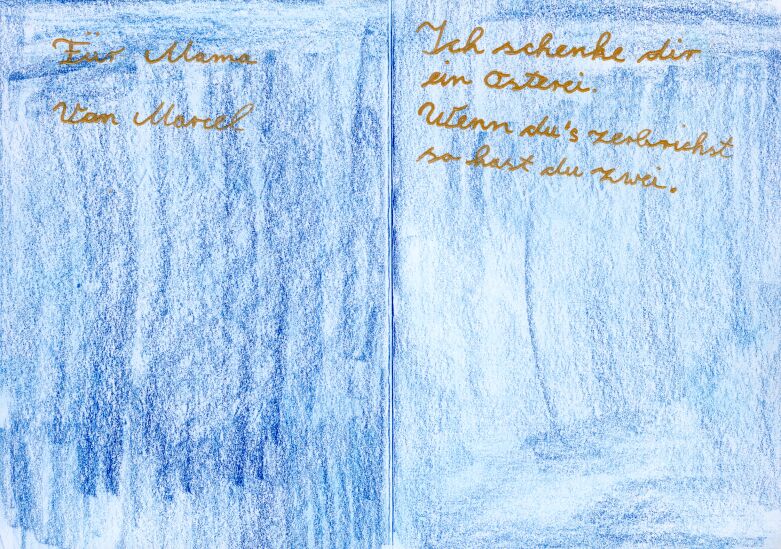 Für Mama
Von Marcel
Ich schenke dir
ein Osterei.
Wenn du's zerbrichst
so hast du zwei.